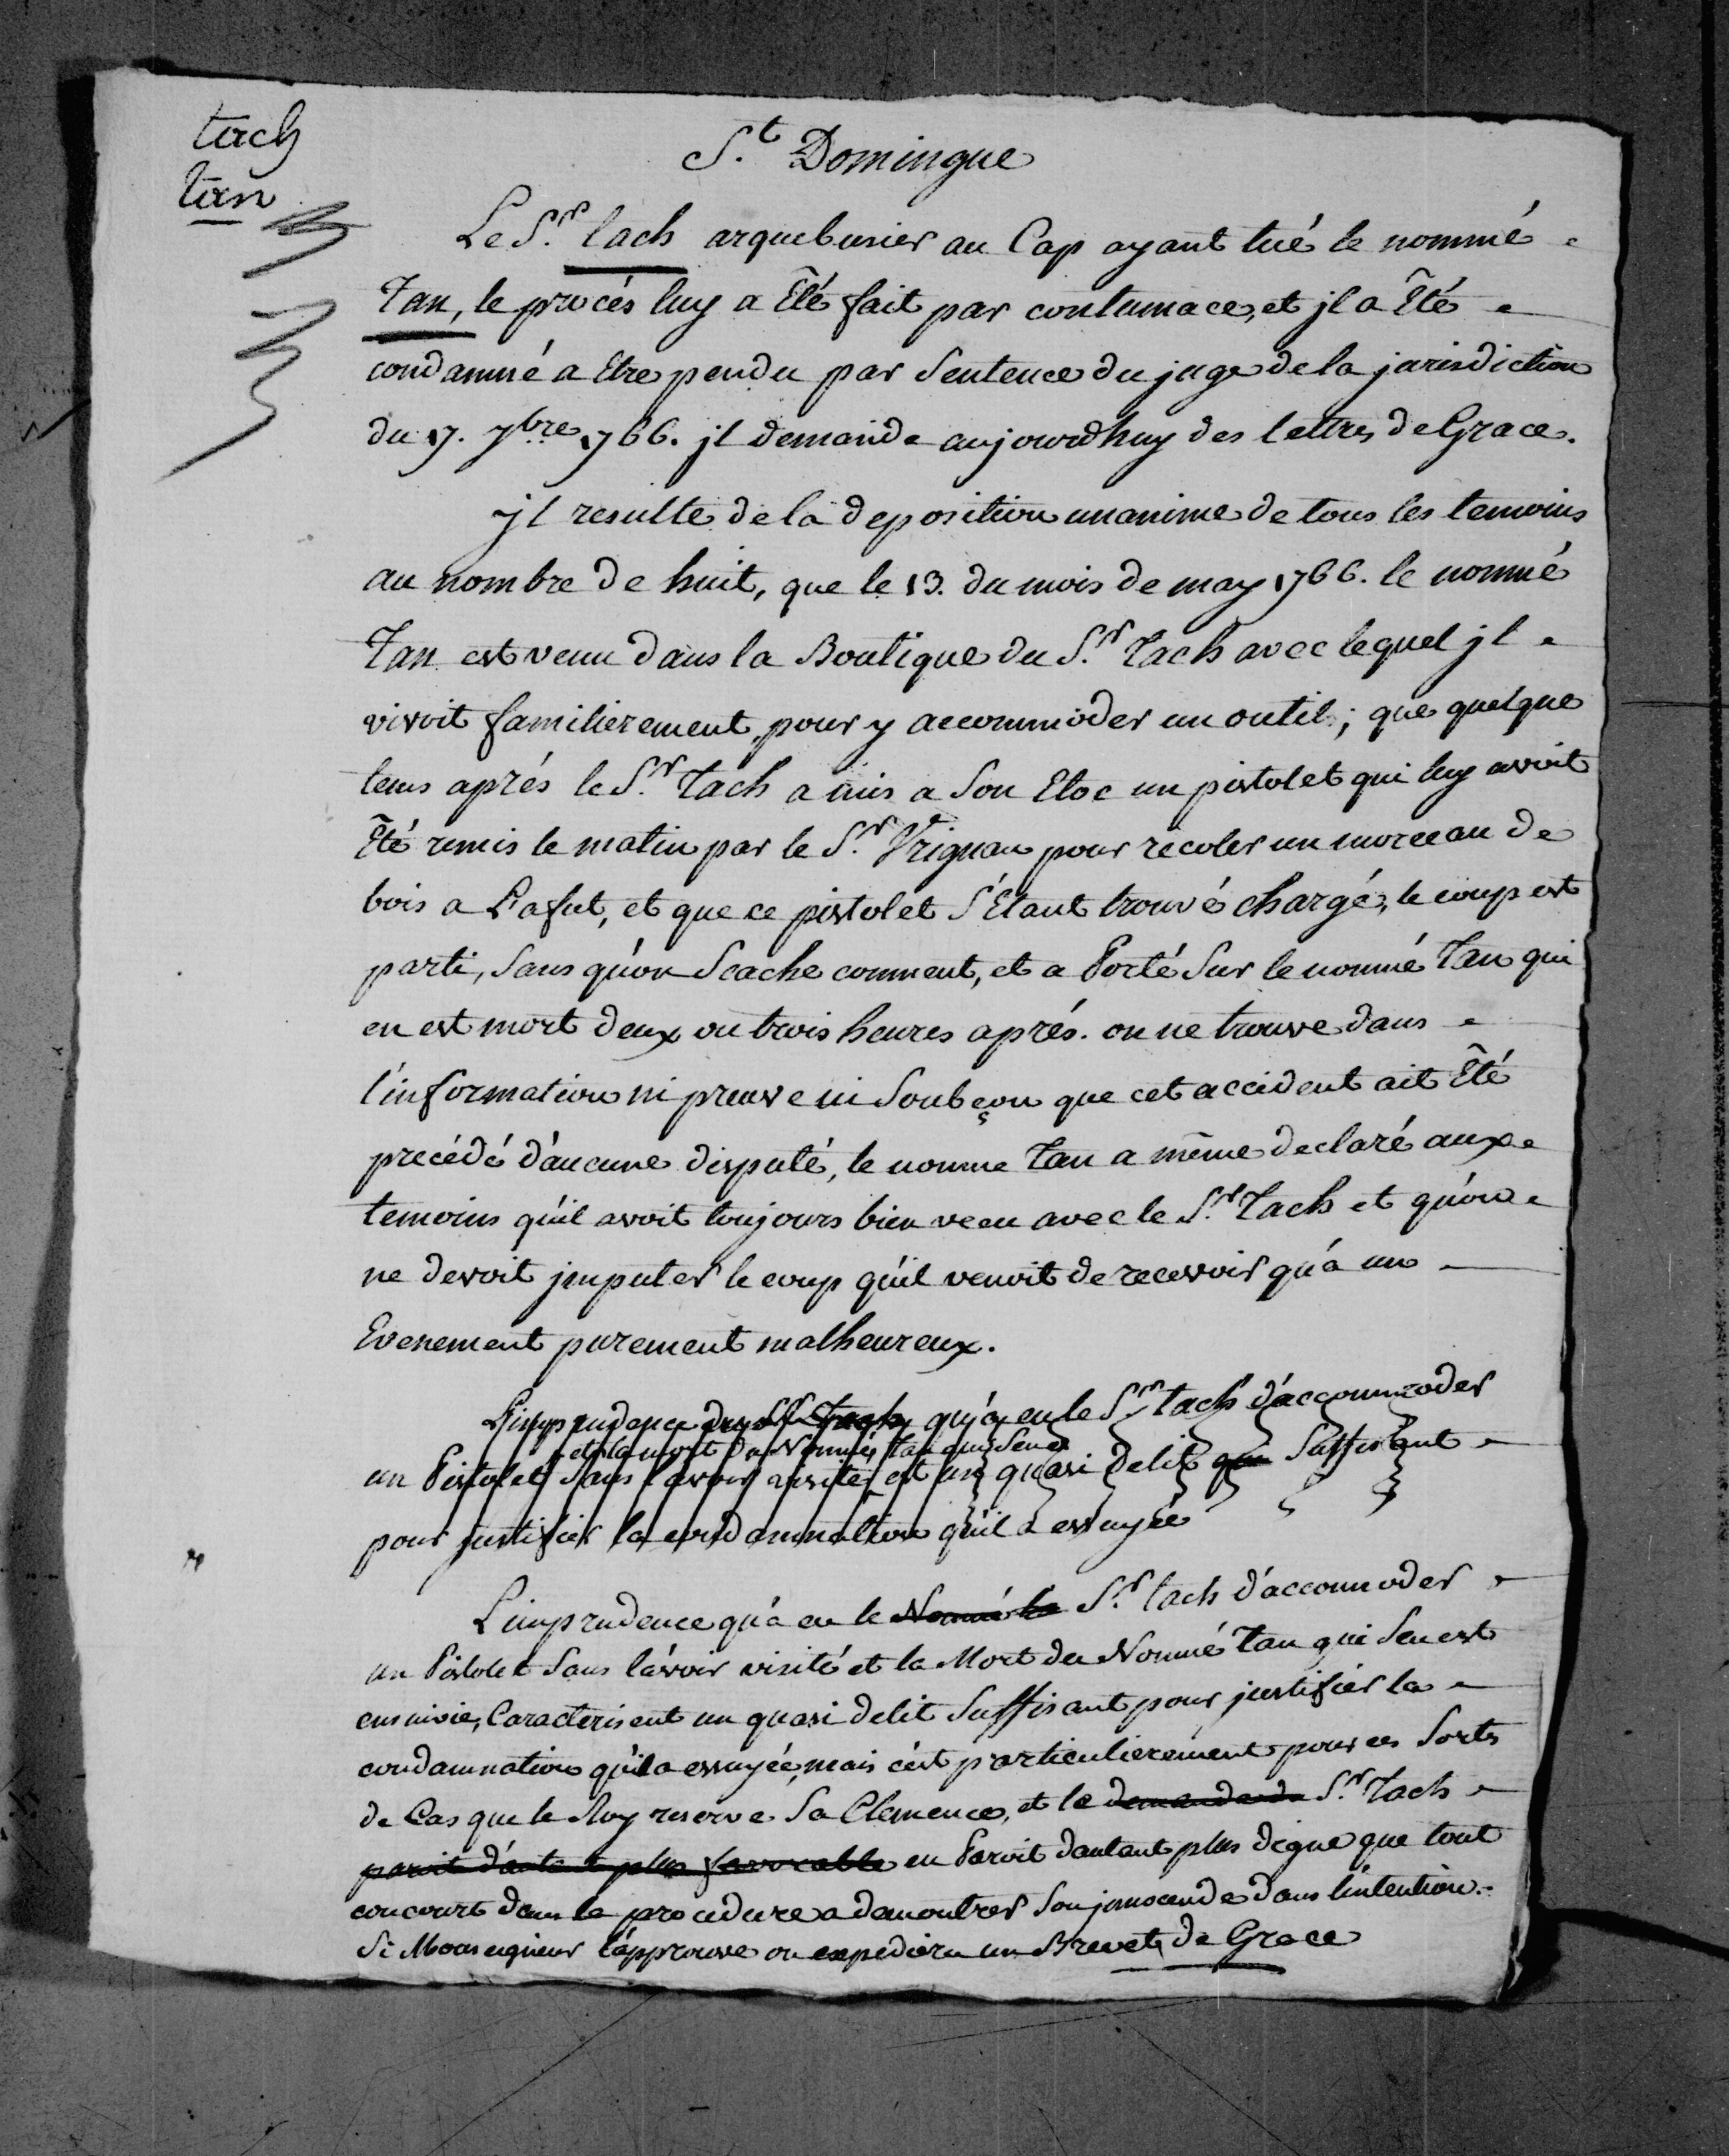 tach
tan
S.t Domingue
Le S.r tach arquebusier au Cap ayant tué le nommé
Tan, le procés luy a Eté fait par contumace, et jl a Eté
condamné a Etre pendu par Sentence du juge de la jurisdiction
du 17. 7bre 1766. jl demande aujourdhuy des lettres de Grace.
jl resulte de la deposition unanime de tous les temoins
au nombre de huit, que le 13. du mois de may 1766. le nommé
Tan est venu dans la Boutique du S.r Tach avec lequel jl
vivoit familierement, pour y accommoder un outil; que quelque
tems aprés le S.r Tach a mis a Son Etoc un pistolet qui luy avoit
Eté remis le matin par le S.r Vrignau pour recoler un morceau de
bois a L'afut, et que ce pistolet S'Etant trouvé chargé, le coup est
parti, Sans qu'on Scache comment, et a Porté Sur le nommé Tan qui
en est mort deux ou trois heures aprés. on ne trouve dans
l'information ni preuve ni Soubçon que cet accident ait Eté
precédé d'aucune disputé, le nomme Tan a même declaré aux
temoins qu'il avoit toujours bien vecu avec le S.r Tach et qu'on
ne devoit jmputer le coup qu'il venoit de recevoir qu'a un
Evenement purement malheureux.
L'imprudence du S.r Tach qu'a eu le S.r tach d'accommoder
et la mort du Nommé Tan qui Sen
un Pistolet Sans l'avoir visité est un quasi delit qui Suffisant
pour justifier la condamnation qu'il a essuyée
L'imprudence qu'a eu le Nommé S.r tach d'accommoder
un Pistolet Sans l'avoir visité et la Mort du Nommé Tan qui Sen est
ensuivie, Caracterisent un quasi delit Suffisant pour justifier la
condamnation qu'il a essuyée, mais c'est particulierement pour ces Sorts
de Cas que le Roy reserve Sa Clemence, et le demande du S.r Tach
paroit d'autant plus favorable en Paroit dautant plus digne que tout
concourt dans la procedure a demontrer Son jnnocence dans l'intention.
Si Monseigneur l'approuve on expediera un Brevet de Grace